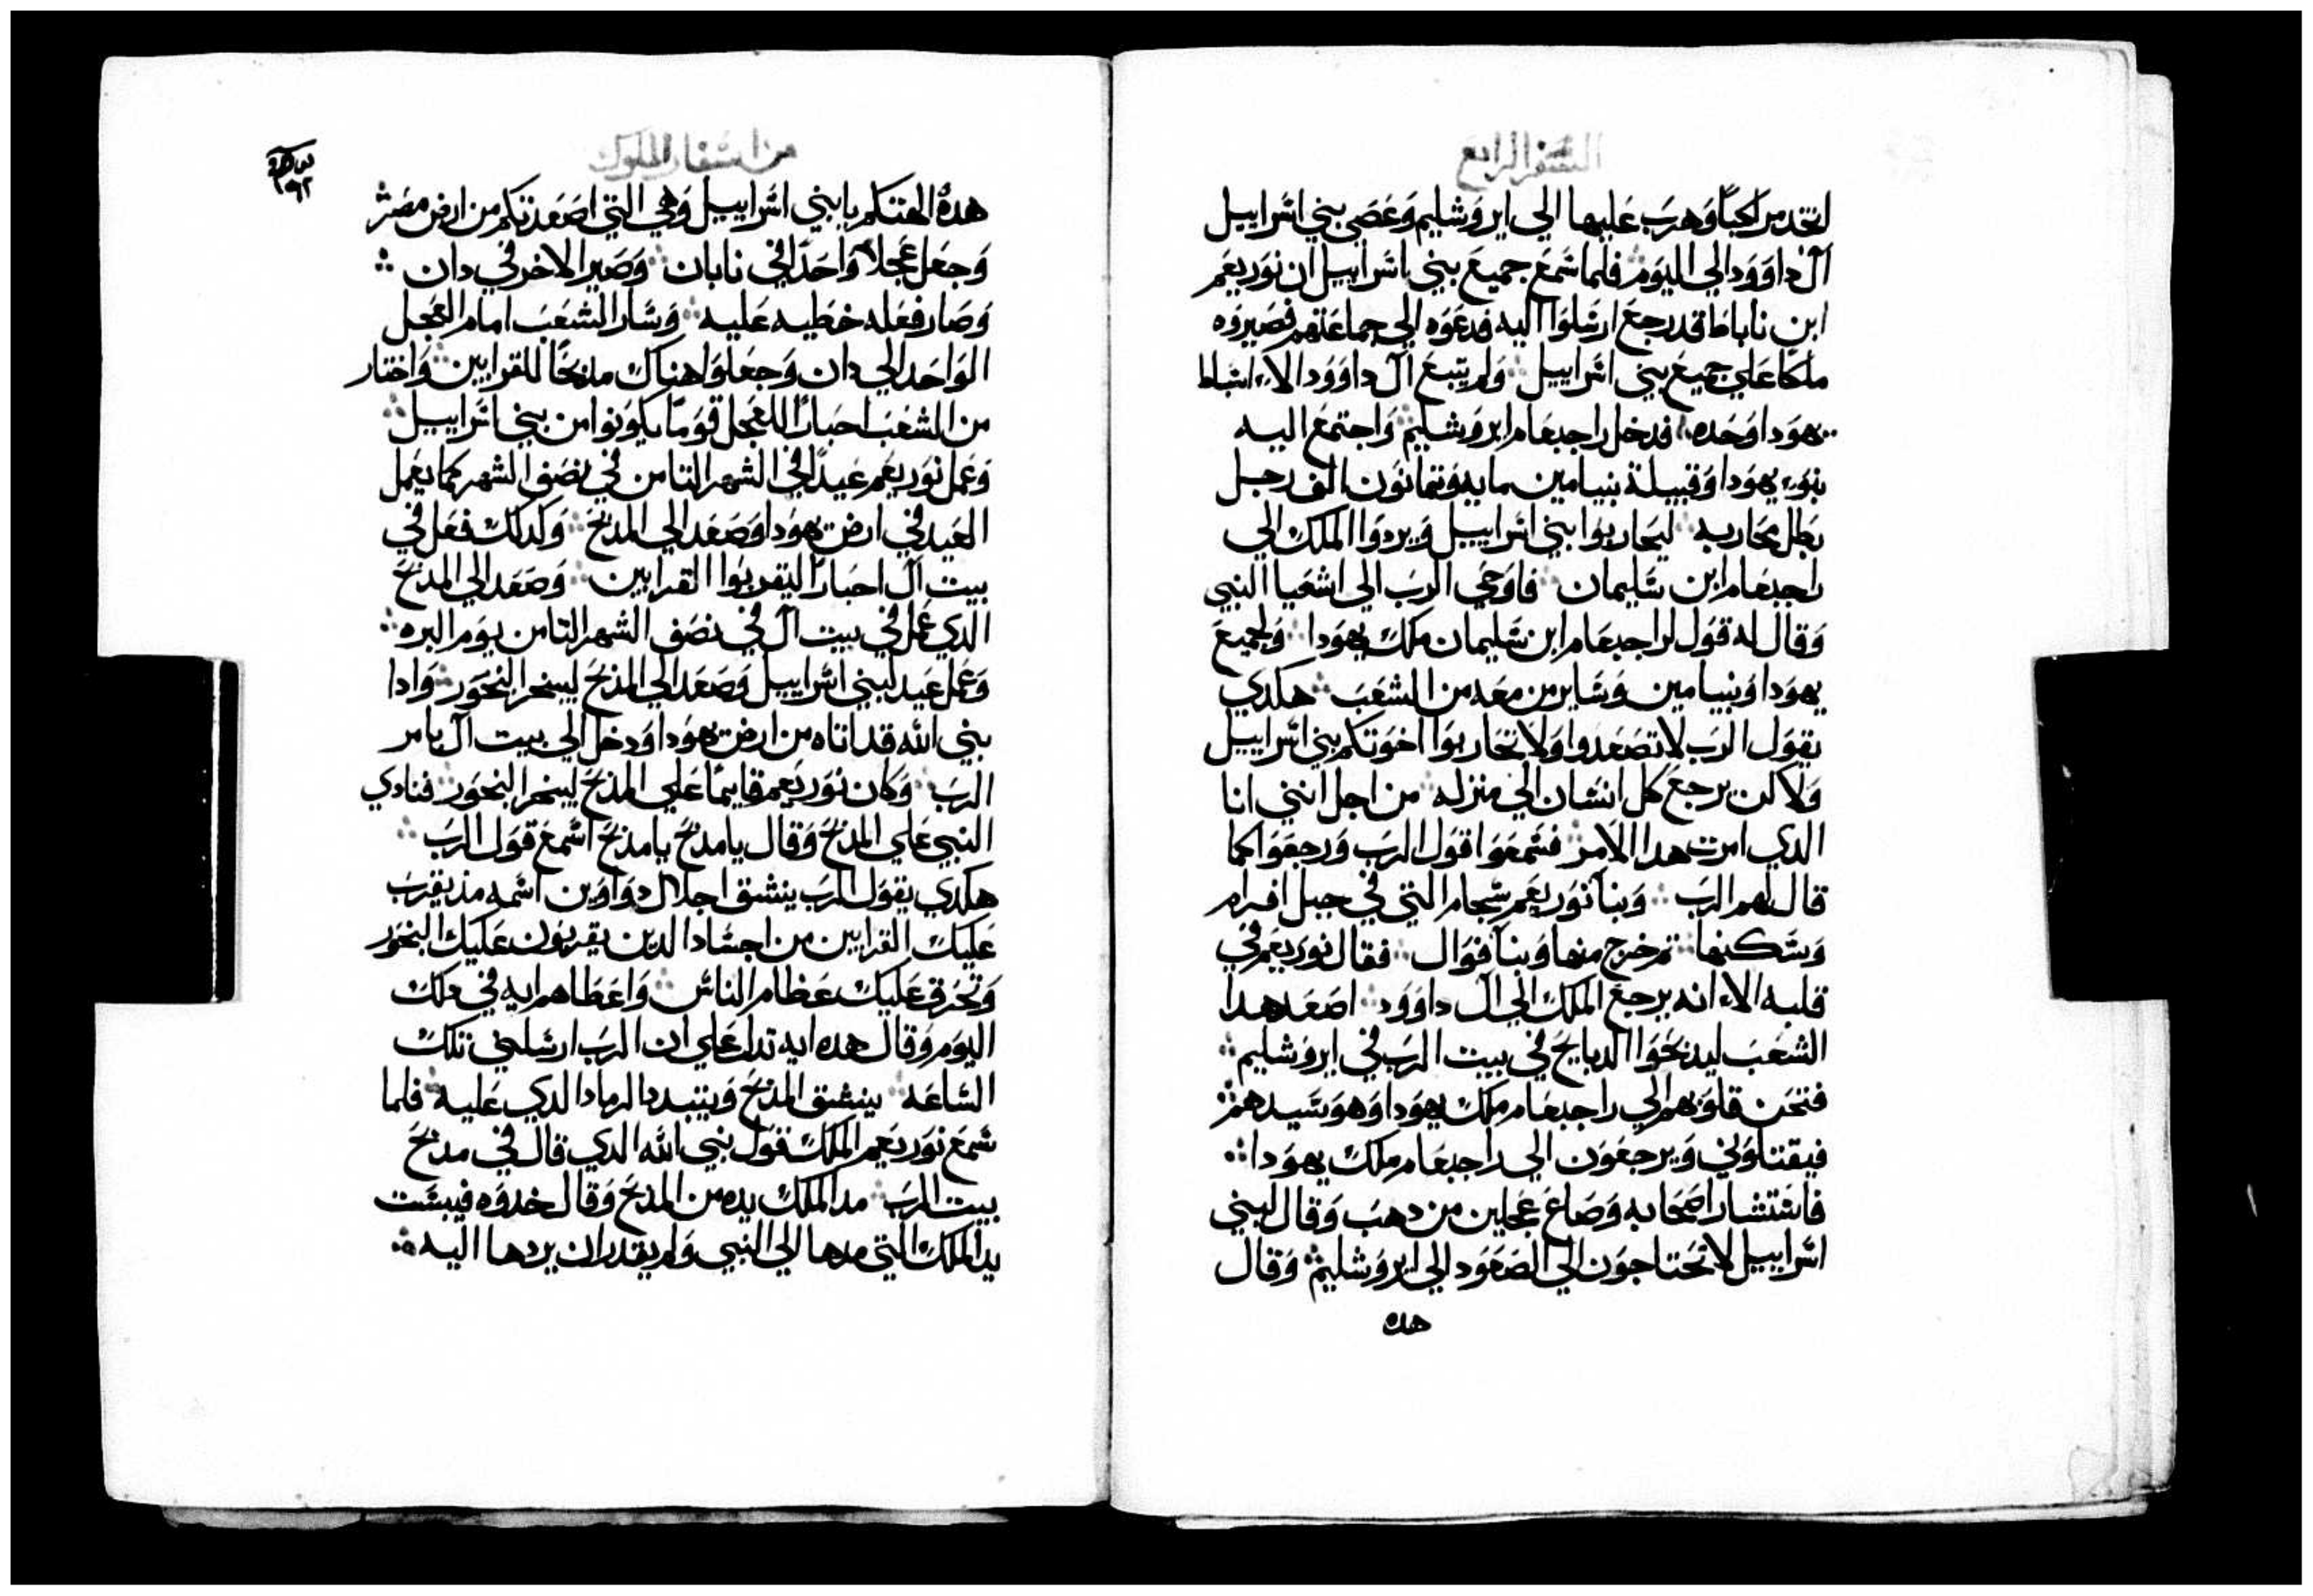 السفر الرابع
اتخد مراكبًا وهرب عليها الي ايروشليم وعصي بني اسراييل
آل داوود الي اليوم ∴ فلما سمع جميع بني اسراييل ان نوريعم
ابن ناباط قد رجع ارسلوا اليه فدعوه الي جماعتهم فصيروه
ملكًا علي جميع بني اسراييل ∴ ولم يتبع آل داوود الاء اسباط
يهودا وحده ∴ فدخل راجبعام ايروشليم ∴ واجتمع اليه
بنوء يهودا وقبيلة بنيامين مايه وتمانون الف رجل
بطل محاربه ∴ ليحاربوا بني اسراييل ويردوا الملك الي
راجبعام ابن سليمان ∴ فاوحي الرب الي اشعيا النبي
وقال له قول لراجبعام ابن سليمان ملك يهودا ∴ ولجميع
يهودا وبنيامين وساير من معه من الشعب ∴ هكدي
يقول الرب لا تصعدوا ولا تحاربوا اخوتكم بني اسراييل
ولاكن يرجع كل انسان الي منزله ∴ من اجل انني انا
الدي امرت هدا الامر ∴ فسمعوا قول الرب ورجعوا كما
قال لهم الرب ∴ وبنا نوريعم سجام التي في جبل افرام
وسكنها ∴ تم خرج منها وبنا فوال ∴ فقال نوريعم في
قلبه الاء انه يرجع الملك الي آل داوود ∴ اصعد هدا
الشعب ليدبحوا الدبايح في بيت الرب في ايروشليم ∴
فتحن قلوبهم الي راجبعام ملك يهودا وهو سيدهم ∴
فيقتلوني ويرجعون الي راجبعام ملك يهودا ∴
فاستشار اصحابه وصاغ عجلين من دهب وقال لبني
اسراييل لا تحتاجون الي الصعود الي ايروشليم ∴ وقال
هده
من اسفار الملوك
هده الهتكم يا بني اسراييل وهي التي اصعدتكم من ارض مصر ∴
وجعل عجلاً واحدًا في نابان ∴ وصير الاخر في دان ∴
وصار فعله خطيه عليه ∴ وسار الشعب امام العجل
الواحد الي دان وجعلوا هناك مدبحًا للقرابين ∴ واختار
من الشعب احبارًا للعجل قومًا يكونوا من بني اسراييل ∴
وعمل نوريعم عيدًا في الشهر التامن في نصف الشهر كما يعمل
العيد في ارض يهودا وصعد الي المدبح ∴ وكدلك فعل في
بيت آل احبارًا ليقربوا القرابين ∴ وصعد الي المدبح
الدي عمل في بيت آل في نصف الشهر التامن يوم البره ∴
وعمل عيد لبني اسراييل وصعد الي المدبح ليبخر البخور ∴ وادا
بني الله قد اتاه من ارض يهودا ودخل الي بيت آل بامر
الرب ∴ وكان نوريعم قايمًا علي المدبح ليبخر البخور ∴ فنادي
النبي علي المدبح وقال يا مدبح يا مدبح اسمع قول الرب ∴
هكدي يقول الرب ينشق اجلال دواوين اسمه مذ يقرب
عليك القرابين من اجساد الدين يقربون عليك البخور
وتحرق عليك عظام الناس ∴ واعطاهم ايه في دلك
اليوم وقال هده ايه تدل علي ان الرب ارسلني تلك
الساعه ∴ ينشق المدبح ويتبدد الرماد الدي عليه ∴ فلما
سمع نوريعم الملك قول نبي الله الدي قال في مدبح
بيت الرب ∴ مد الملك يده من المدبح وقال خدوه فيبست
يد الملك التي مدها الي النبي ولم يقدر ان يردها اليه ∴